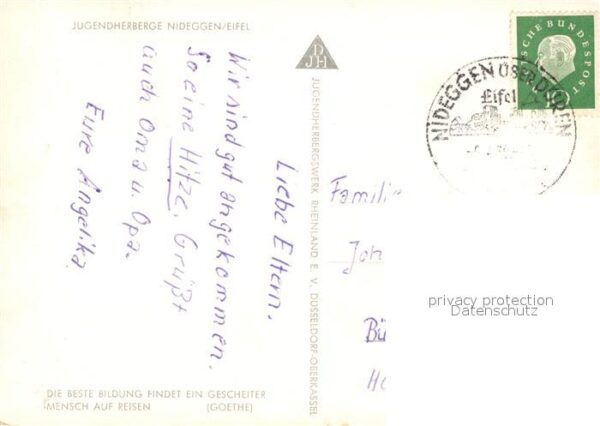 JUGENDHERBERGE NIDEGGEN/EIFEL
Liebe Eltern.
Wir sind gut angekommen.
So eine Hitze. Grüßt
auch Oma u. Opa.
Eure Angelika.
DIE BESTE BILDUNG FINDET EIN GESCHEITER
MENSCH AUF REISEN (GOETHE)
DJH
JUGENDHERBERGSWERK RHEINLAND E. V. DÜSSELDORF-OBERKASSEL
SCHE BUNDESPOST
NIDEGGEN ÜBER DÜREN
Eifel
Famili
Joh
Bü
privacy protection
Datenschutz